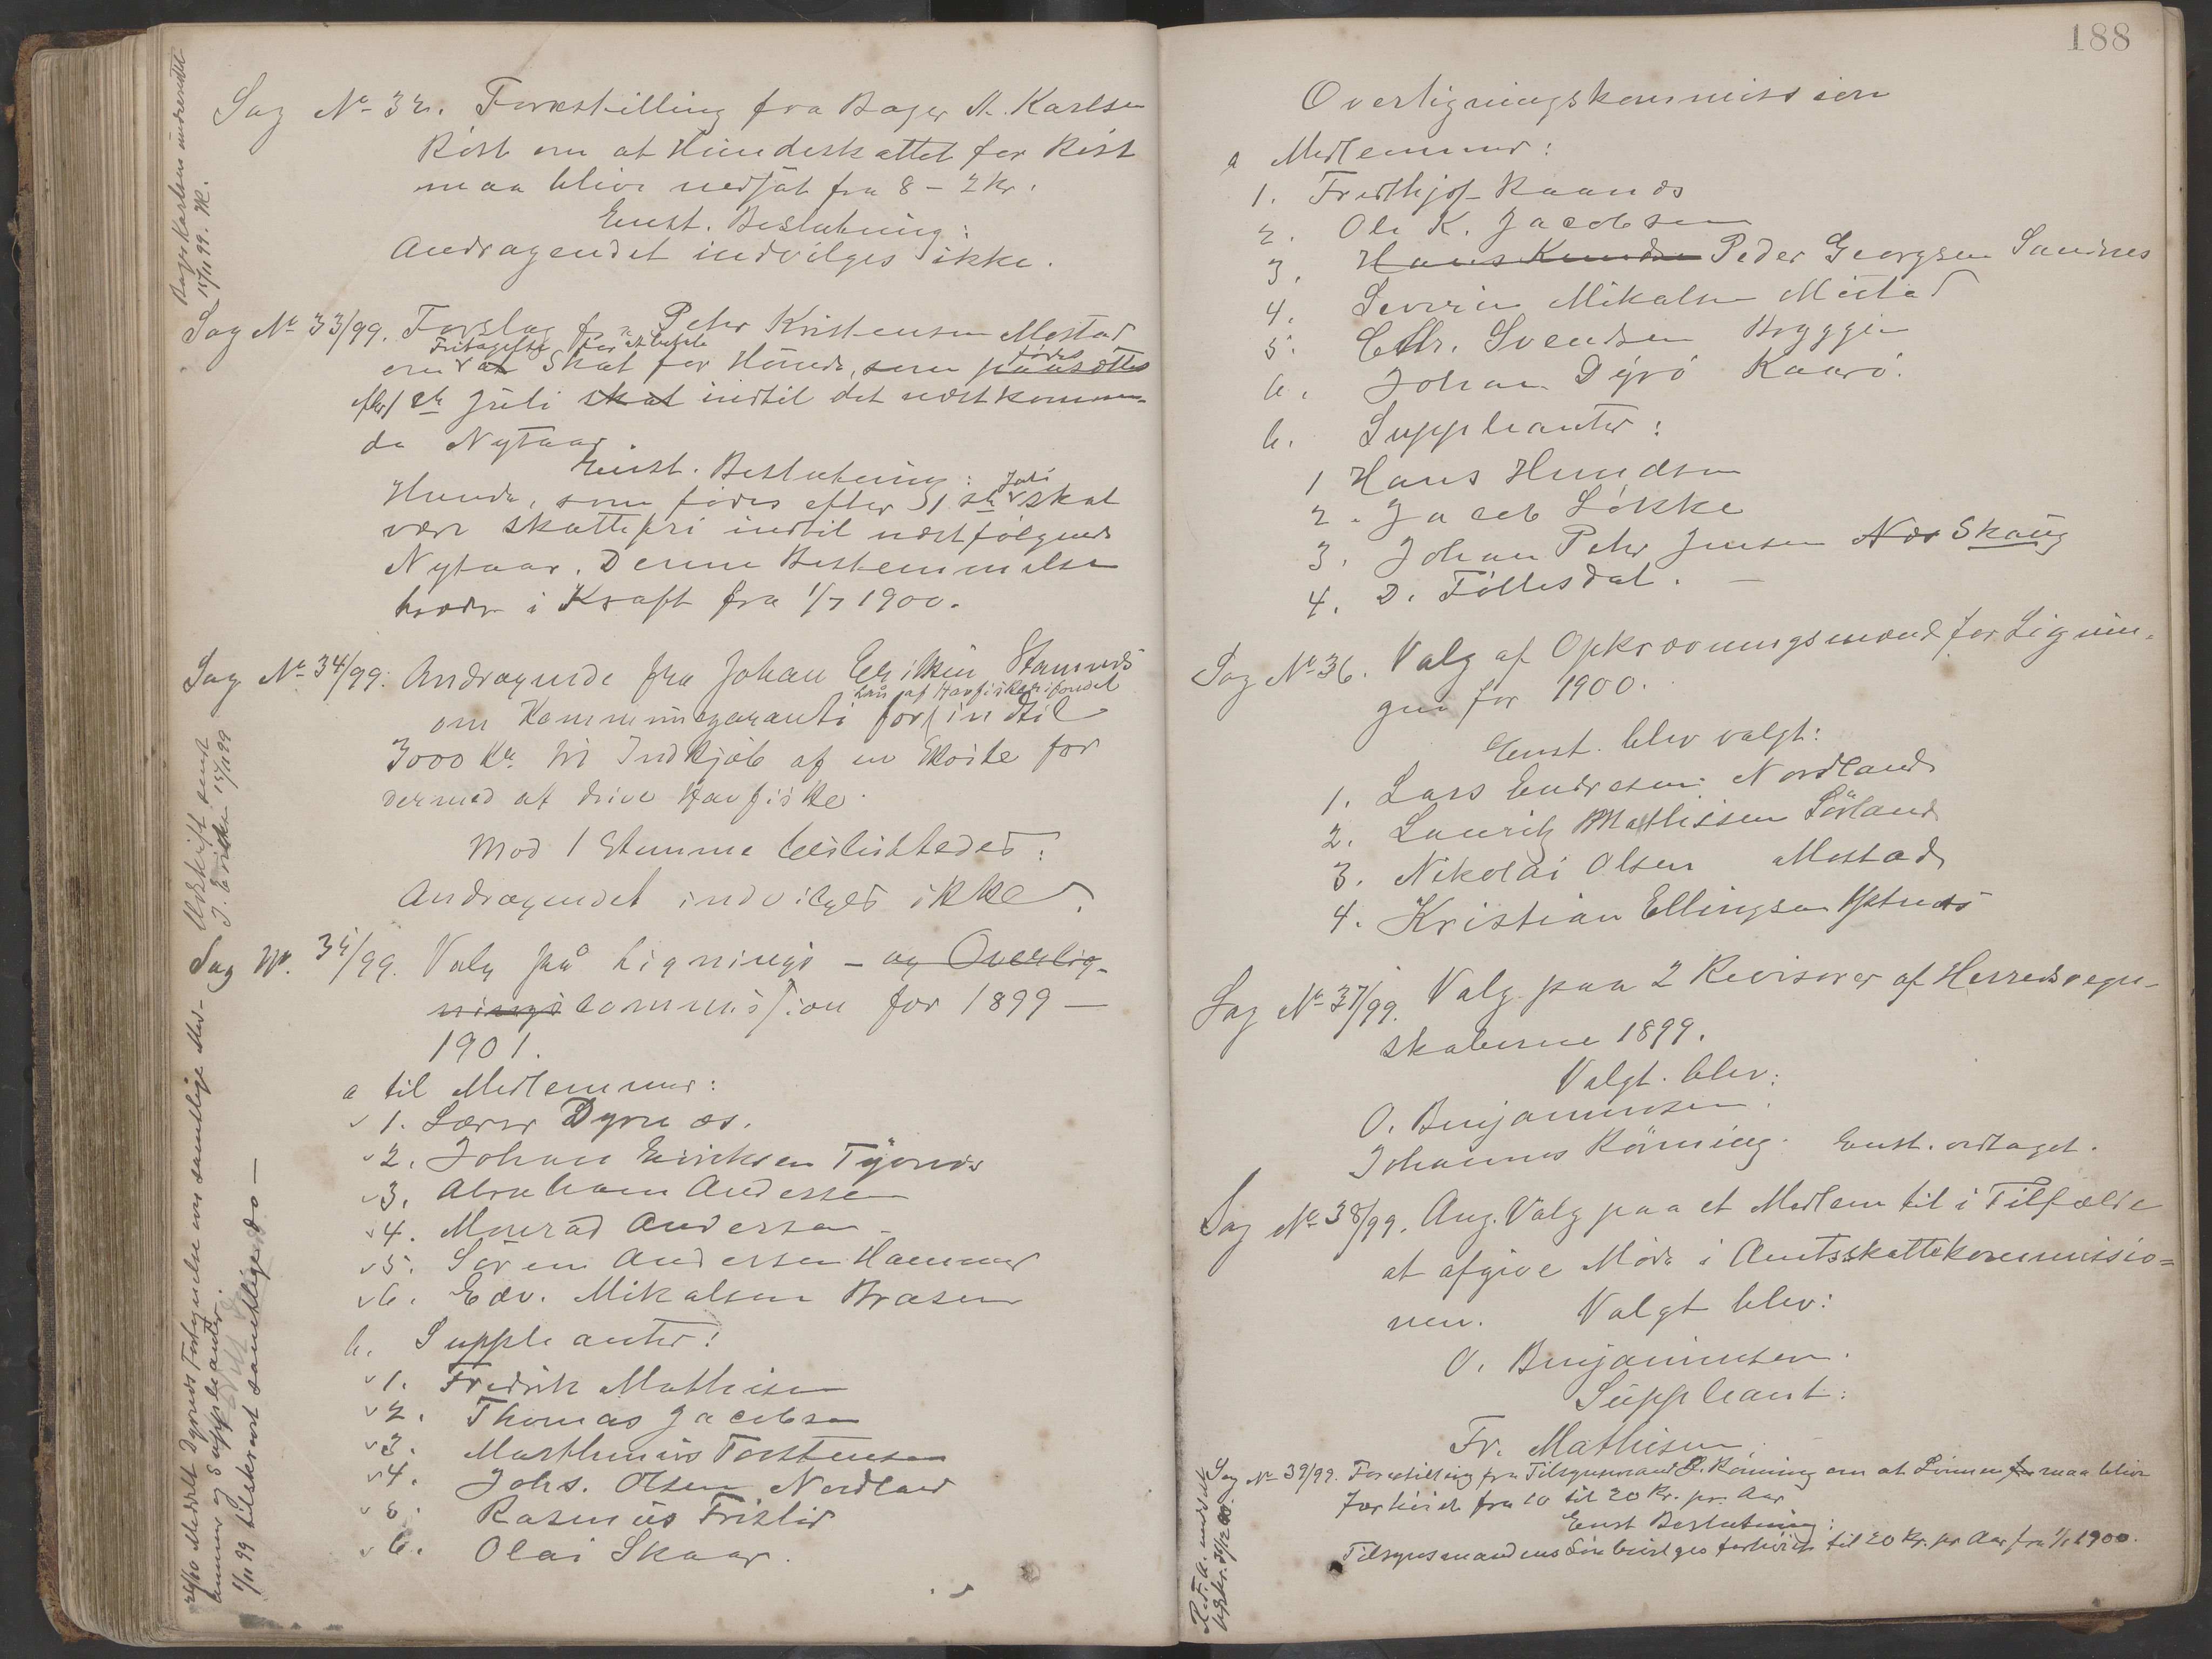 Sag No 32. Forestilling fra Bager A. Karlsen
Röst om at Hundeskattet for Röst
maa blive nedsat fra 8 - 2 Kr.
Enst. Beslutning:
Andragendet indvilges ikke.
Bager Karlsen underrettet
15/11 99. M.
Sag No 33/99. Forslag fra Peter Kristensen Mostad
Fritagelse for at betale
om at Skat for Hunde, som paasættes
födes
efter 1ste Juli skat indtil det næstkommen-
de Nytaar.
Enst. Beslutning:
Hunde, som födes efter 1ste Juli skal
være skattefri indtil næstfölgende
Nytaar. Denne Bestemmelse
træder i Kraft fra 1/7 1900.
Sag No 34/99. Andragende fra Johan Eriksen Stamnes
Lån af Havfiskerifondet
om Kommunegaranti for indtil
3000 Kr. til Indkjöb af en Skøite for
dermed at drive Havfiske.
Mod 1 Stemme besluttedes:
Andragendet indvilges ikke.
Udskrift sendt
J. Eriksen 15/11 99
Sag No. 35/99. Valg på Lignings - og Overlig-
ningscommission for 1899 -
1901.
a til Medlemmer:
1. Lærer Dyrnæs.
2. Johan Eriksen Työnes
3. Abraham Andersen
4. Monrad Andersen
5. Sören Andersen Hammer
6. Edv. Mikalsen Brasen
b. Suppleanter:
1. Fredrik Mathisen
2. Thomas Jacobsen
3. Marthinus Torstensen
4. Johs. Olsen Nordland
5. Rasmus Frislid
6. Olai Skaar.
26/10 Meddelt Dyrnes Fortegnelse over samtlige Med-
lemmer og Suppleanter.
1/11 99 tilskrevet samtlige do -
188
Overligningskommission
a Medlemmer:
1. Fredthjof Raanes
2. Ole K. Jacobsen
3. Hans Knudsen Peder Georgsen Sandnes
4. Severin Mikalsen Mostad
5. Chr. Svendsen Bryggen
6. Johan Dyrö Kaarö.
b. Suppleanter:
1 Hans Knudsen
2. Jacob Lökke
3. Johan Peter Jensen Nor Skaug
4. D. Föllesdal. -
Sag No 36. Valg af Opkrævningsmænd for Lignin-
gen for 1900.
Enst. blev valgt:
1. Lars Endresen Nordland
2. Lauritz Mathissen Sörland
3. Nikolai Olsen Mostad
4. Kristian Ellingsen Ystnes
Sag No 37/99. Valg paa 2 Revisorer af Herredsregn-
skaberne 1899.
Valgt blev:
O. Benjaminsen.
Johannes Rönning. Enst. vedtaget.
Sag No 38/99. Ang. Valg paa et Medlem til i Tilfælde
at afgive Möde i Amtsskattekommissio=
nen. Valgt blev:
O. Benjaminsen.
Suppleant:
Fr. Mathisen.
Sag No 39/99. Forestilling fra Tilsynsmand J. Rönning om at Lönnen for maa blive
forhöiet fra 10 til 20 Kr. pr. Aar
Enst Beslutning:
Tilsynsmandens Lön bevilges forhöiet til 20 Kr. pr Aar fra 1/1 1900.